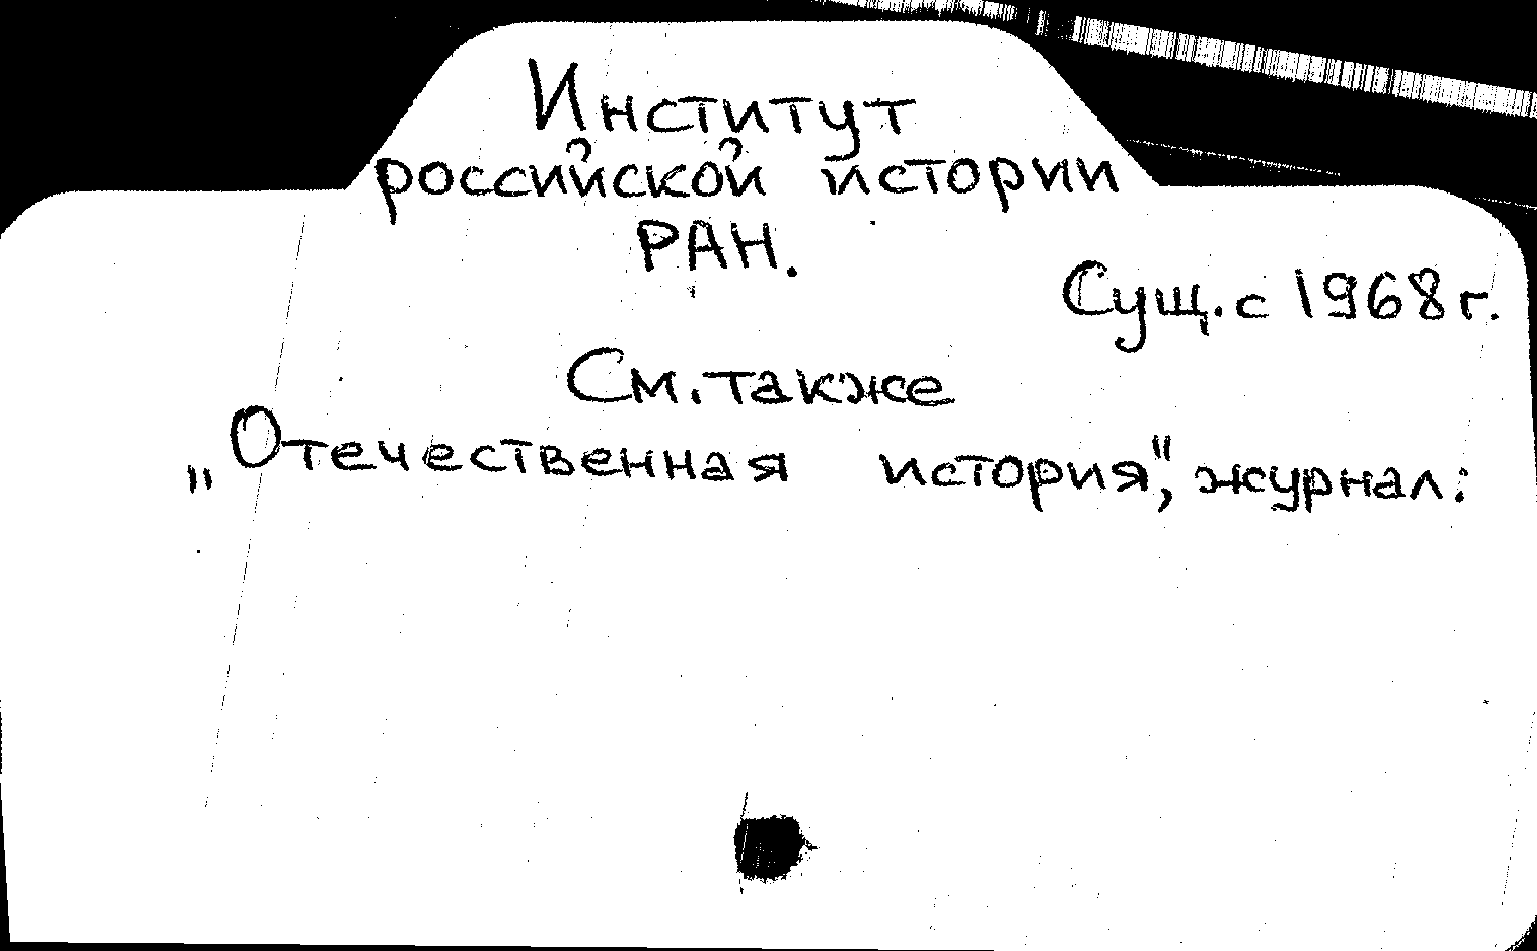 Институт
российской истории
РАН.
Сущ. с 1968 г.
См. также
„Отечественная история", журнал.